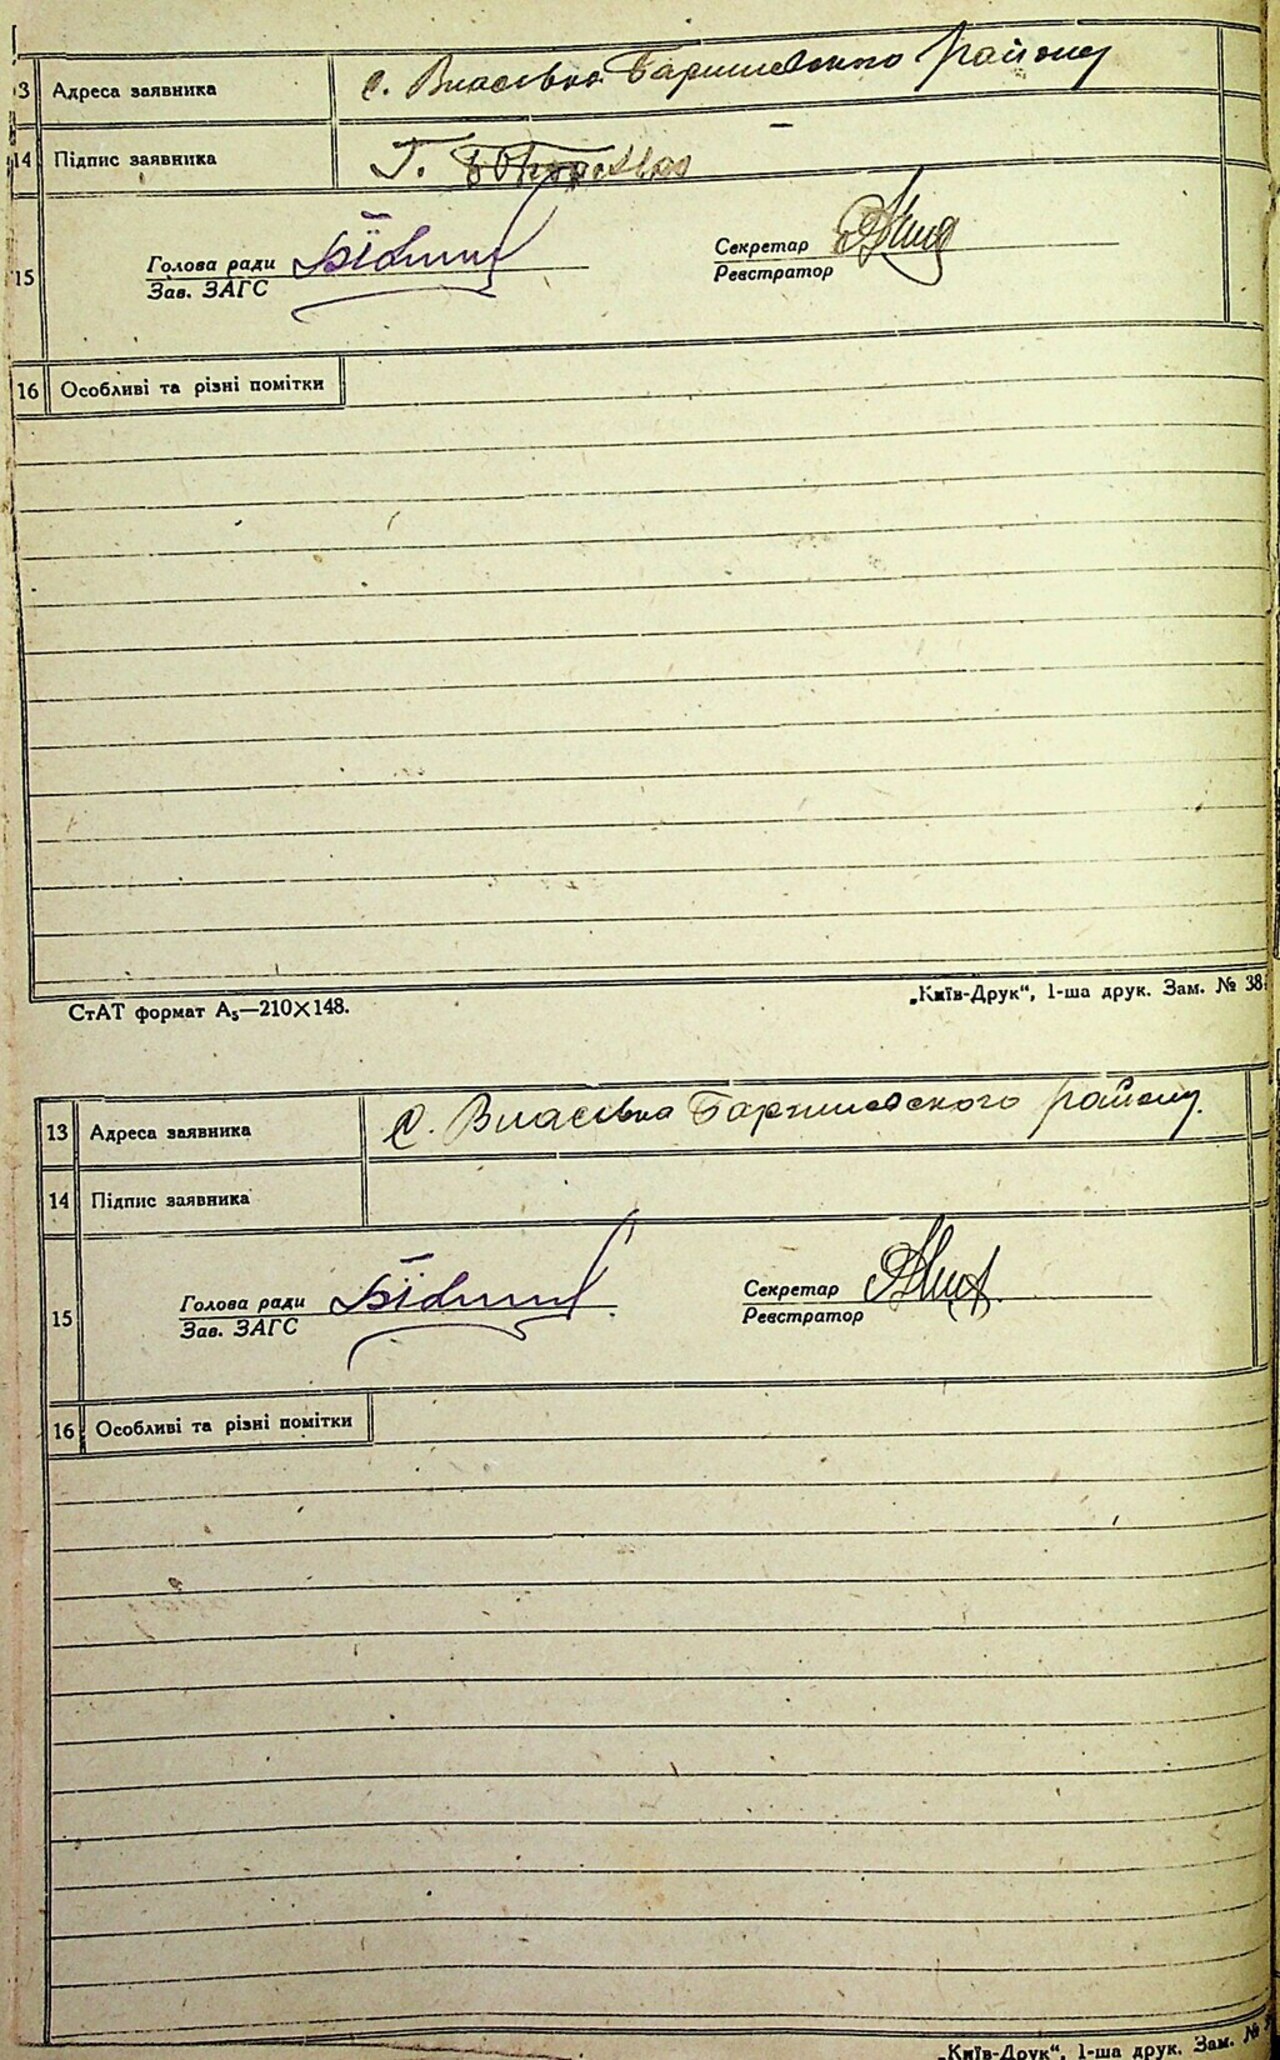 13 Адреса заявника с. Власівка Баришевского району
14 Підпис заявника Г.
15 Голова ради Секретар
Зав. ЗАГС Реєстратор
16 Особливі та різні помітки
СтАТ формат А₅—210×148. „Київ-Друк“, 1-ша друк. Зам. № 38
13 Адреса заявника с. Власівка Баришевского району.
14 Підпис заявника
15 Голова ради Секретар
Зав. ЗАГС Реєстратор
16 Особливі та різні помітки
„Київ-Друк“, 1-ша друк. Зам. №